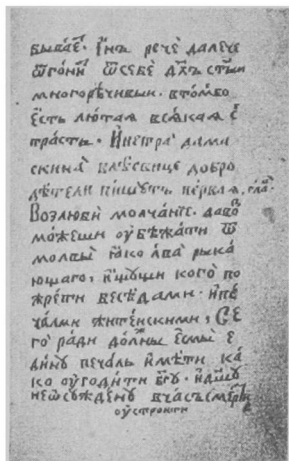 бывае҃т. И҆нъ речѐ далече
ѿгони́т ѿ себѐ дх҃ъ ст҃ыи
многорѣ́чивыи. в то́мбо
є҆́сть лю́таѧ всѧ́каѧ
стра́сть. И҆ петра̀ дама
скина̀ в
дѣтели пи́шутъ перваѧ, гла̑.
Возлюбѝ молча́нїе. да во
мо́жеши ѹ҆бѣжа́ти ѿ
молвы̀ ꙗ҆́ко льва̀ рыка́
ющаго, и҆щущи кого̀ по
жре́ти бесѣ́дами. и҆ пе
ча́льми жите́искими, Се
го̀ ра́ди до́лжны є҆смы̀ є҆
ди́нѹ печа́ль и҆мѣ́ти ка́
ко ѹ҆годи́ти бг҃ѹ. и҆ дш҃ѹ
неѡсуже́нѹ в ча́съ сме́рти
ѹ҆строити